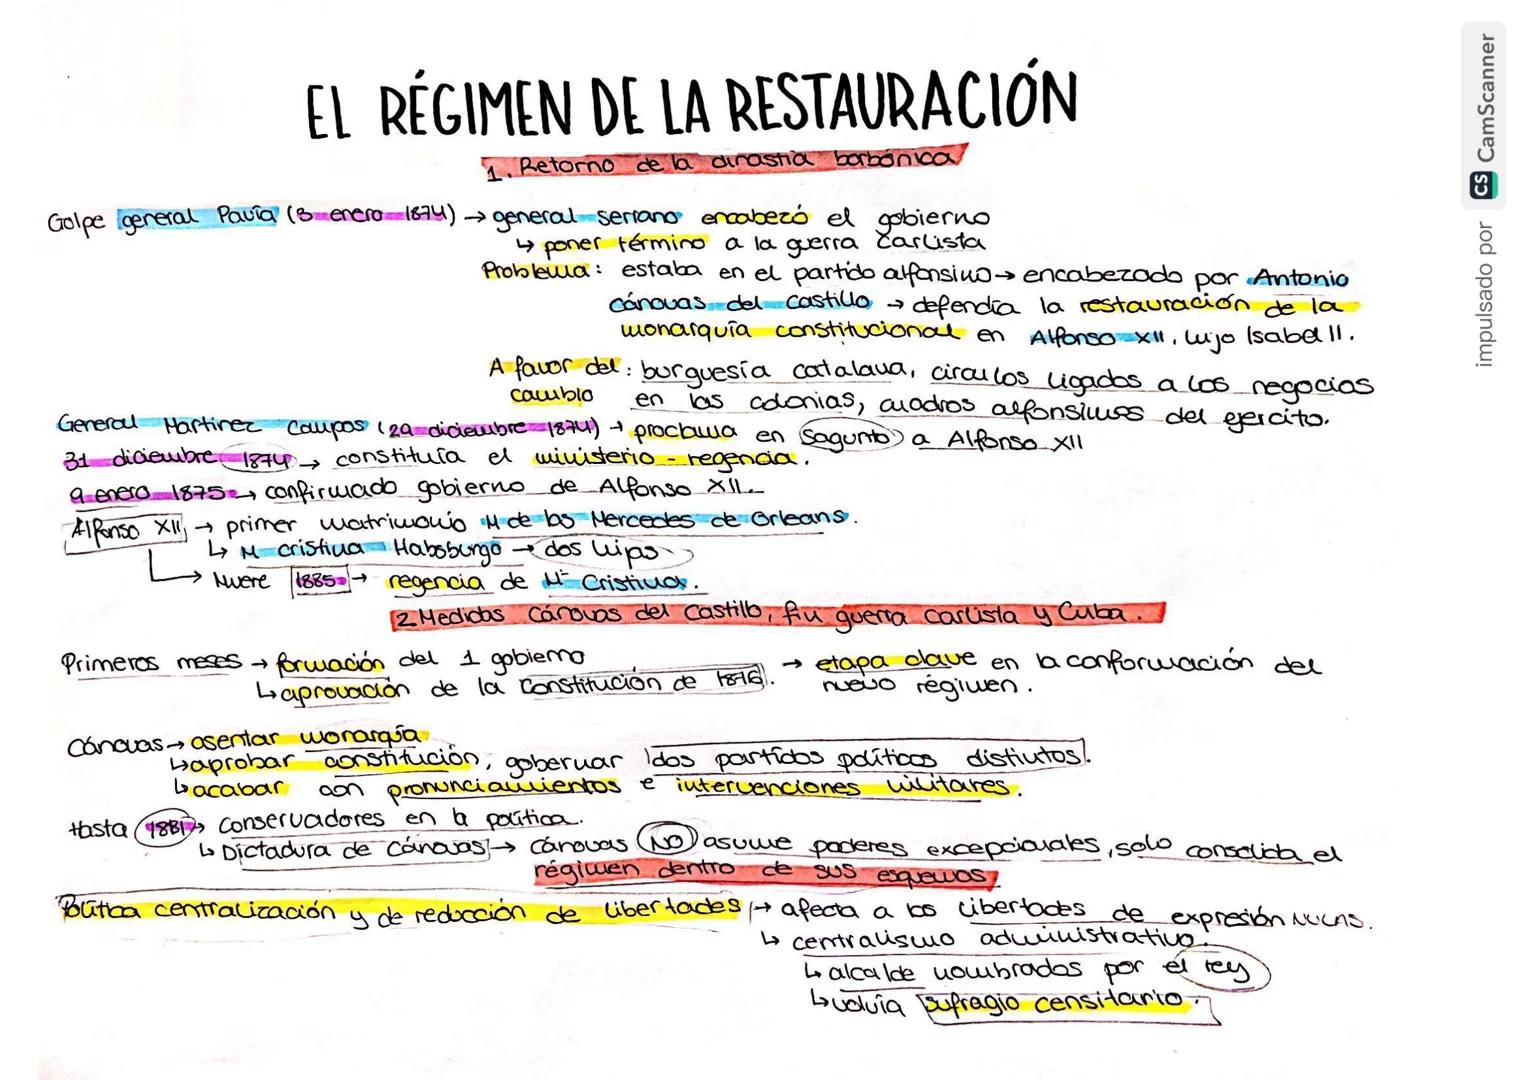 EL RÉGIMEN DE LA RESTAURACIÓN
1. Retorno de la dinastía borbónica
Golpe general Pavía (3 enero 1874) → general serrano encabezó el gobierno
↳ poner término a la guerra carlista
Problema: estaba en el partido alfonsino → encabezado por Antonio
cánovas del Castillo → defendía la restauración de la
monarquía constitucional en Alfonso XII, hijo Isabel II.
A favor del cambio: burguesía catalana, círculos ligados a los negocios
en las colonias, cuadros alfonsinos del ejercito.
General Martínez Campos (29 diciembre 1874) → proclama en Sagunto a Alfonso XII
31 diciembre 1874 → constituía el ministerio-regencia.
9 enero 1875 → confirmado gobierno de Alfonso XII.
Alfonso XII → primer matrimonio M de las Mercedes de Orleans.
↳ M cristina Habsburgo → dos hijas
→ Muere 1885 → regencia de Mª Cristina.
2 Medidas Cánovas del Castillo, fin guerra carlista y Cuba.
Primeros meses → formación del 1 gobierno
↳ aprovación de la Constitución de 1876. → etapa clave en la conformación del
nuevo régimen.
Cánovas → asentar monarquía
↳ aprobar constitución, gobernar dos partidos políticos distintos.
↳ acabar con pronunciamientos e intervenciones militares.
Hasta 1881 → Conservadores en la política.
↳ Dictadura de Cánovas → cánovas NO asume poderes excepcionales, solo consolida el
régimen dentro de sus esquemas
Política centralización y de reducción de libertades → afecta a las libertades de expresión
↳ centralismo administrativo.
↳ alcalde nombrados por el rey
↳ volvía sufragio censitario.
impulsado por CS CamScanner